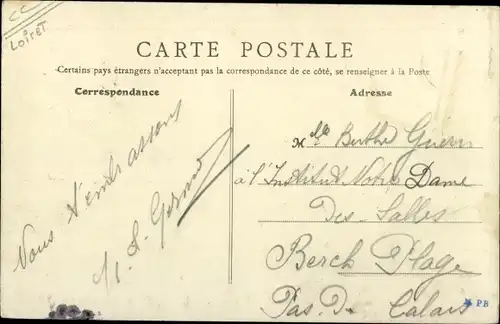 CC
Loiret
CARTE POSTALE
Certains pays étrangers n'acceptant pas la correspondance de ce côté, se renseigner à la Poste
Correspondance
Nous t'embrassons
Adresse
Mlle Berthe Guern
à l'Institut Notre Dame
Des Salles
Berck Plage
Pas. D. Calais
PB